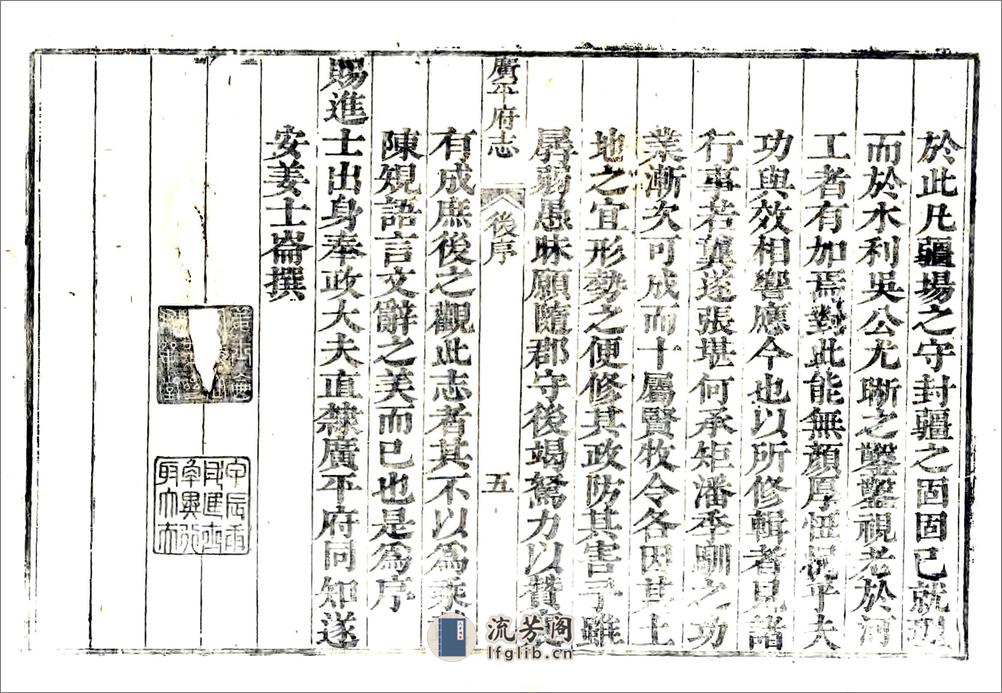 於此凡疆場之守封疆之固固已就理
而於水利吳公尤晣之鑿鑿視老於河
工者有加焉對此能無顏厚忸怩乎夫
功與效相響應今也以所修輯者見諸
行事若龔遂張堪何承矩潘季馴之功
業漸次可成而十屬賢牧令各因其土
地之宜形勢之便修其政防其害予雖
孱弱愚昧願隨郡守後竭駑力以贊
有成庶後之觀此志者其不以為乘
廣平府志 後序 五
陳覙語言文辭之美而已也是為序
賜進士出身奉政大夫直隸廣平府同知遂
安姜士崙撰
流芳阁
lfglib.cn